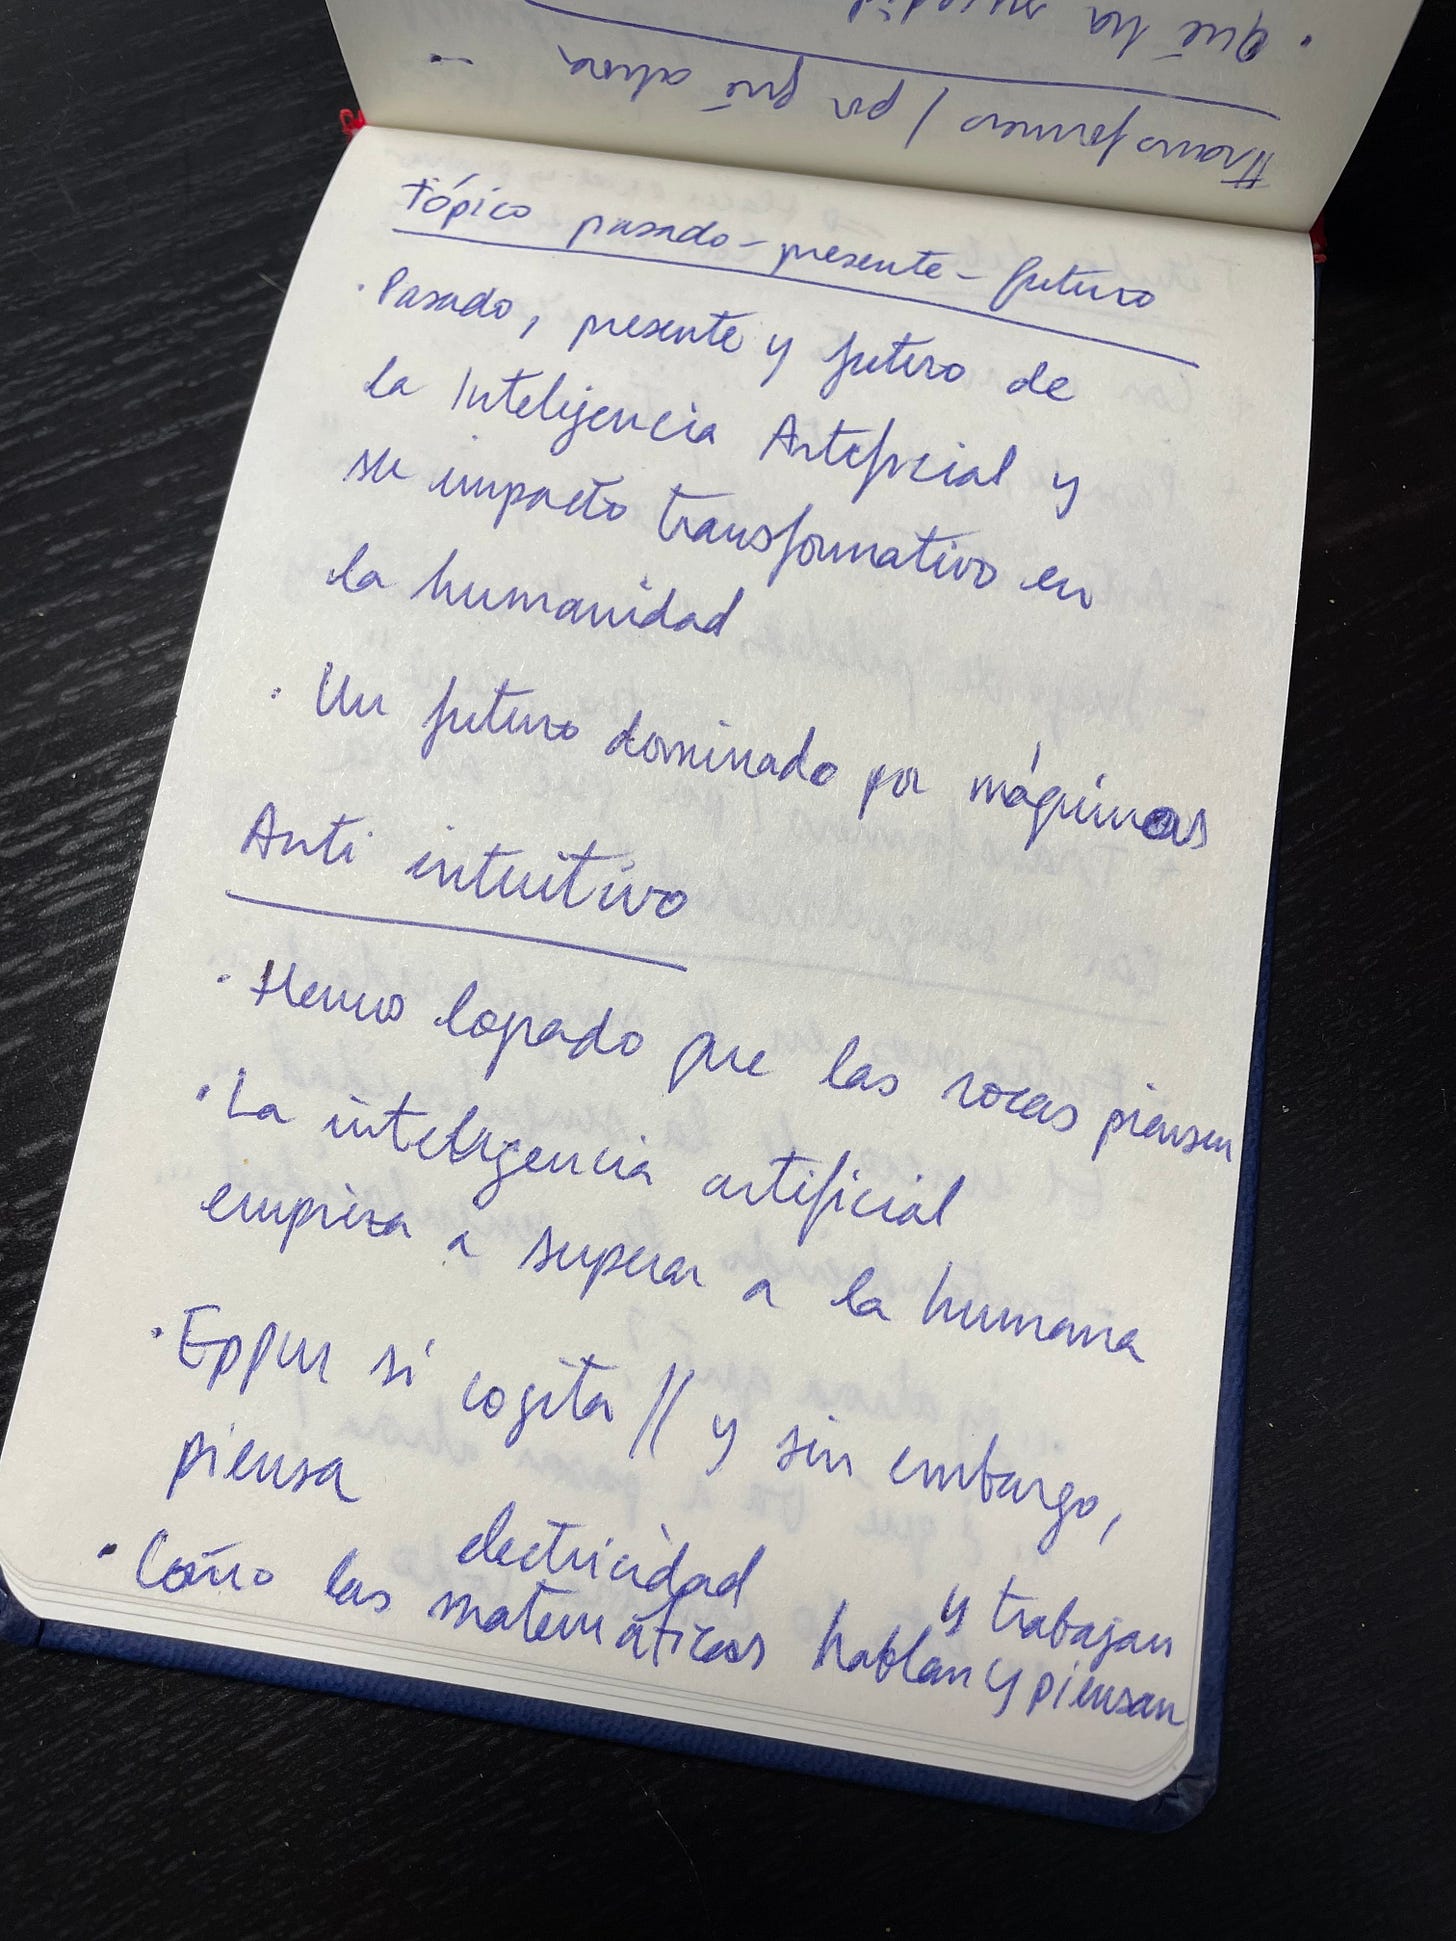 Qué ha
transformers / por qué ahora
Tópico pasado-presente-futuro
· Pasado, presente y futuro de
la Inteligencia Artificial y
su impacto transformativo en
la humanidad
· Un futuro dominado por máquinas
Anti intuitivo
· Hemos logrado que las rocas piensen
· La inteligencia artificial
empieza a superar a la humana
· Eppur si cogita // y sin embargo,
piensa
electricidad y trabajan
· Cómo las matemáticas hablan y piensan